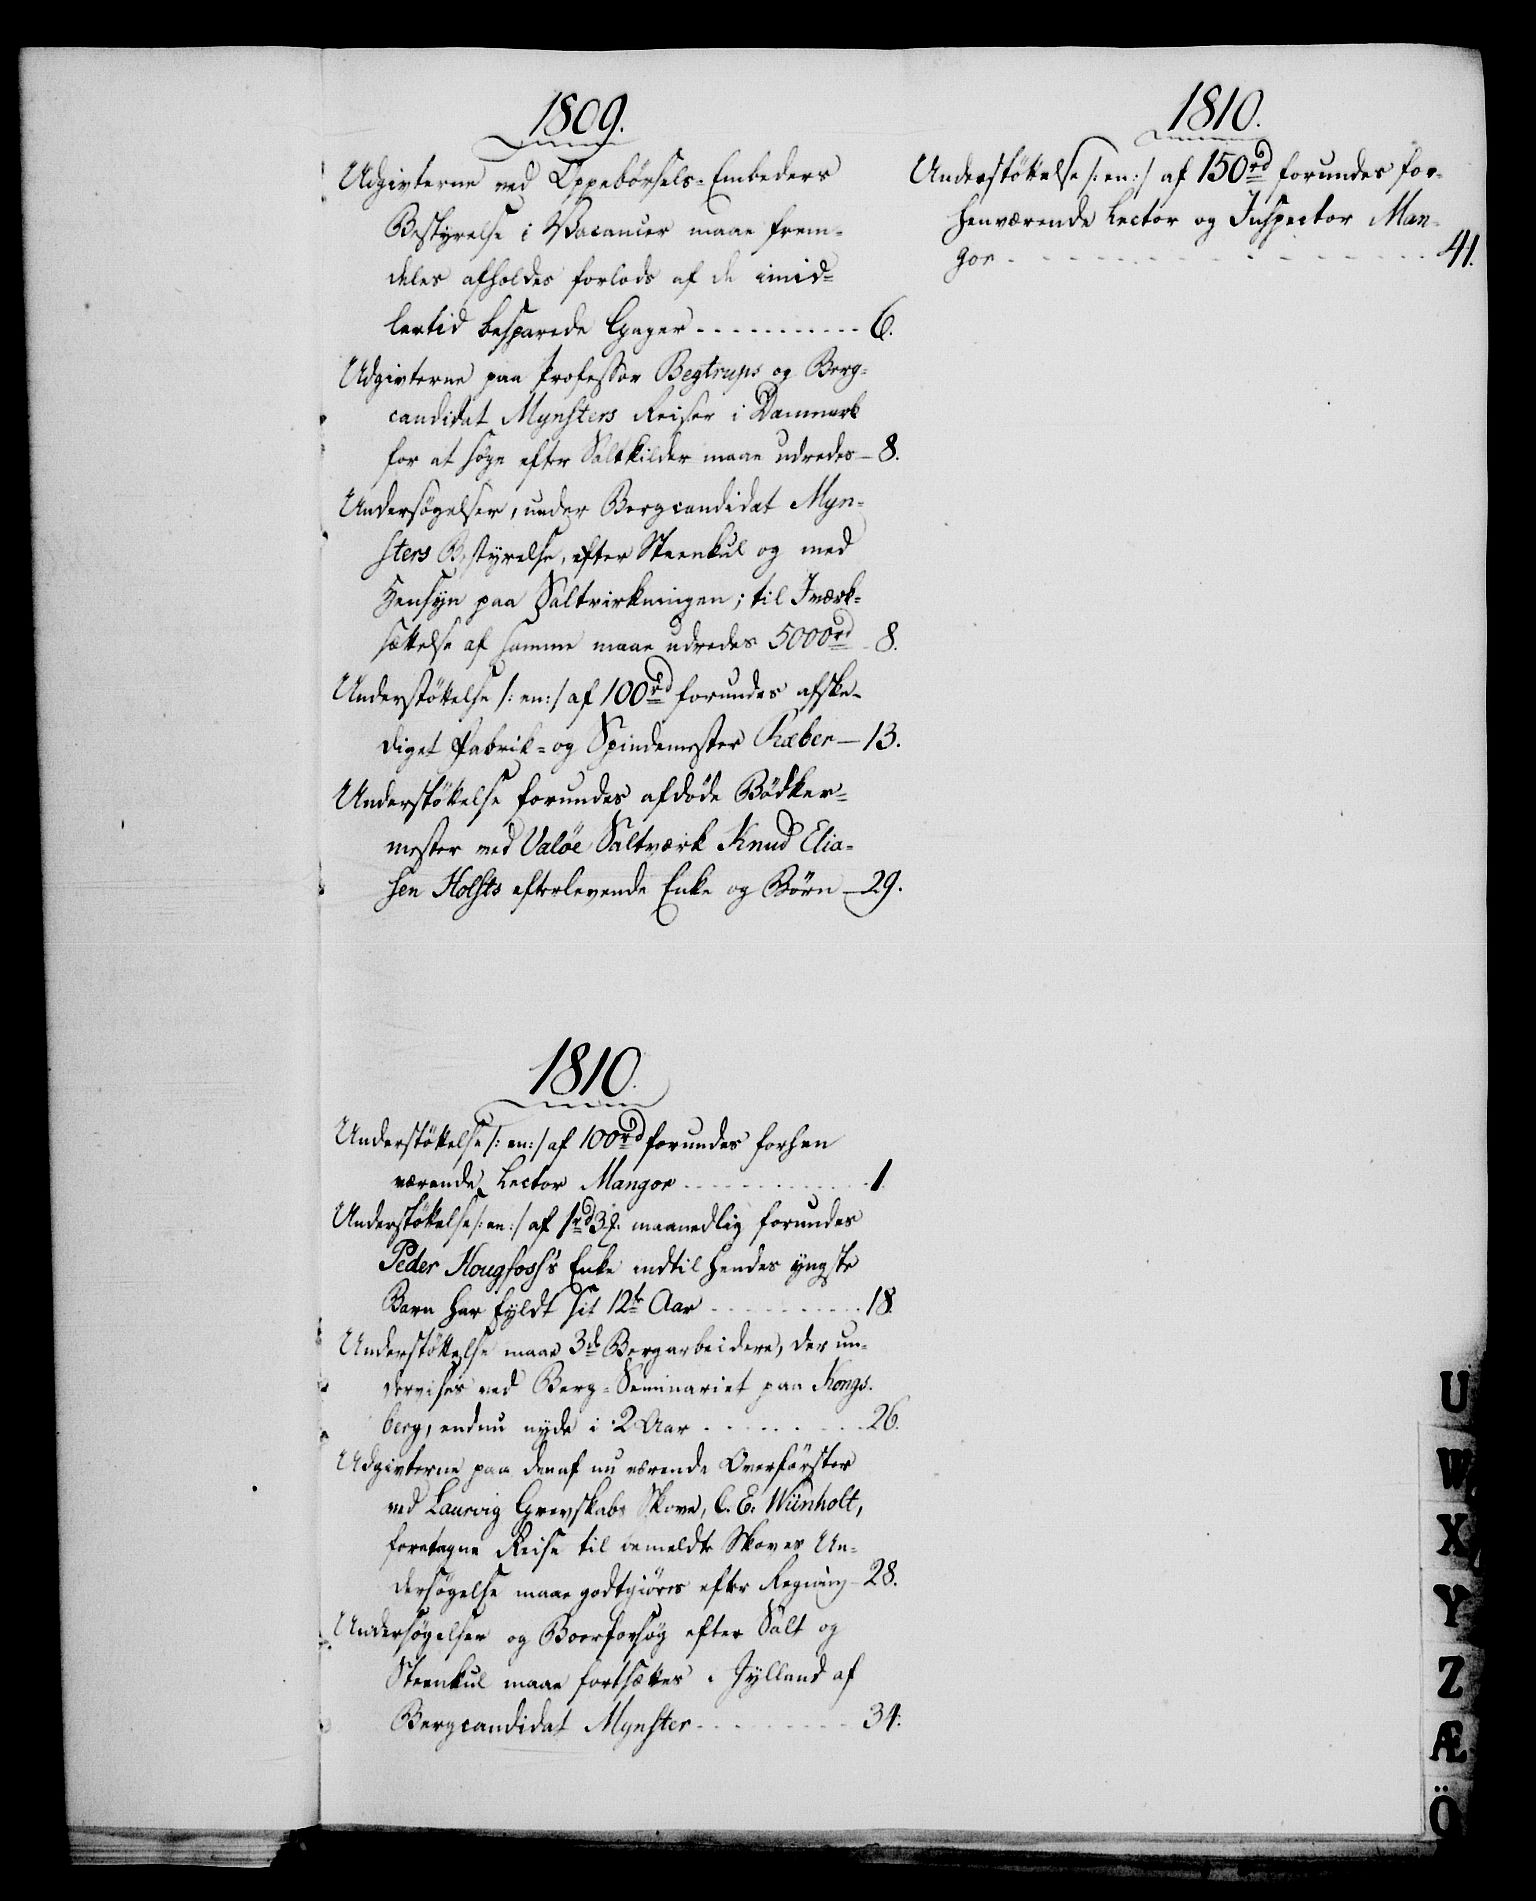 1809.
Udgivterne ved Oppebørsels-Embeders
Bestyrelse i Vacancer maae frem-
deles afholdes forlods af de imid-
lertid besparede Gager - - - - - - - - - - - 6.
Udgivterne paa Professor Begtrups og Berg-
candidat Mynsters Reiser i Danmark
for at søge efter Saltkilder maae udredes - 8.
Undersøgelser, under Bergcandidat Myn-
sters Bestyrelse, efter Steenkul og med
Hensyn paa Saltvirkningen; til Iværk-
sættelse af samme maae udredes 5000rd - 8.
Understøttelse /: en:/ af 100rd forundes afske-
diget Fabrik- og Spindemester Ræber - 13.
Understøttelse forundes afdøde Bødker-
mester ved Valøe Saltværk Knud Elia-
sen Holsts efterlevende Enke og Børn - 29.
1810.
Understøttelse /: en:/ af 100rd forundes forhen
værende Lector Mangor - - - - - - - - - - 1
Understøttelse /: en:/ af 1rd 3 maanedlig forundes
Peder Hougfoss's Enke indtil hendes yngste
Barn har fyldt sit 12te Aar - - - - - - - - 18.
Understøttelse maae 3de Bergarbeidere, der un-
dervises ved Berg-Seminariet paa Kongs-
berg, endnu nyde i 2 Aar - - - - - - - 26.
Udgivterne paa den af nu værende Overførster
ved Laurvig Grevskabs Skove, C. E. Wünholt,
foretagne Reise til bemeldte Skoves Un-
dersøgelse maae godtgiøres efter Regning - 28.
Undersøgelser og Boerforsøg efter Salt og
Steenkul maae fortsættes i Jylland af
Bergcandidat Mynster - - - - - - - - - 34.
1810.
Understøttelse /: en:/ af 150rd forundes for-
henværende Lector og Inspector Man-
gor - - - - - - - - - - - - - - - - - - - 41.
U
W
X
Y
Z
Æ
Ö